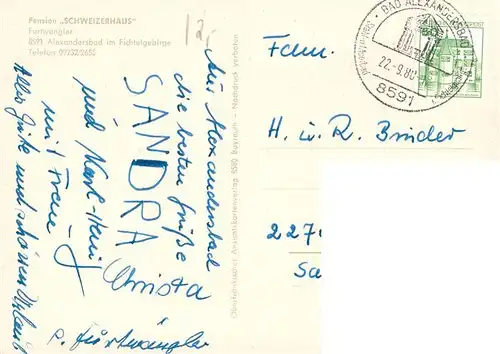 Pension „SCHWEIZERHAUS"
Furtwengler
8591 Alexandersbad im Fichtelgebirge
Telefon 09232/2655
12
Aus Alexandersbad
die besten Grüße
SANDRA
und Karl-Heinz
mit Frene
Christa
Alles Gute und schönen Urlaub
P. Furtwängler
Oberfränkischer Ansichtskartenverlag 8580 Bayreuth - Nachdruck verboten
BAD ALEXANDERSBAD
22.-9.80
8591
60
Fam.
H. u. R. Binder
227
Sa